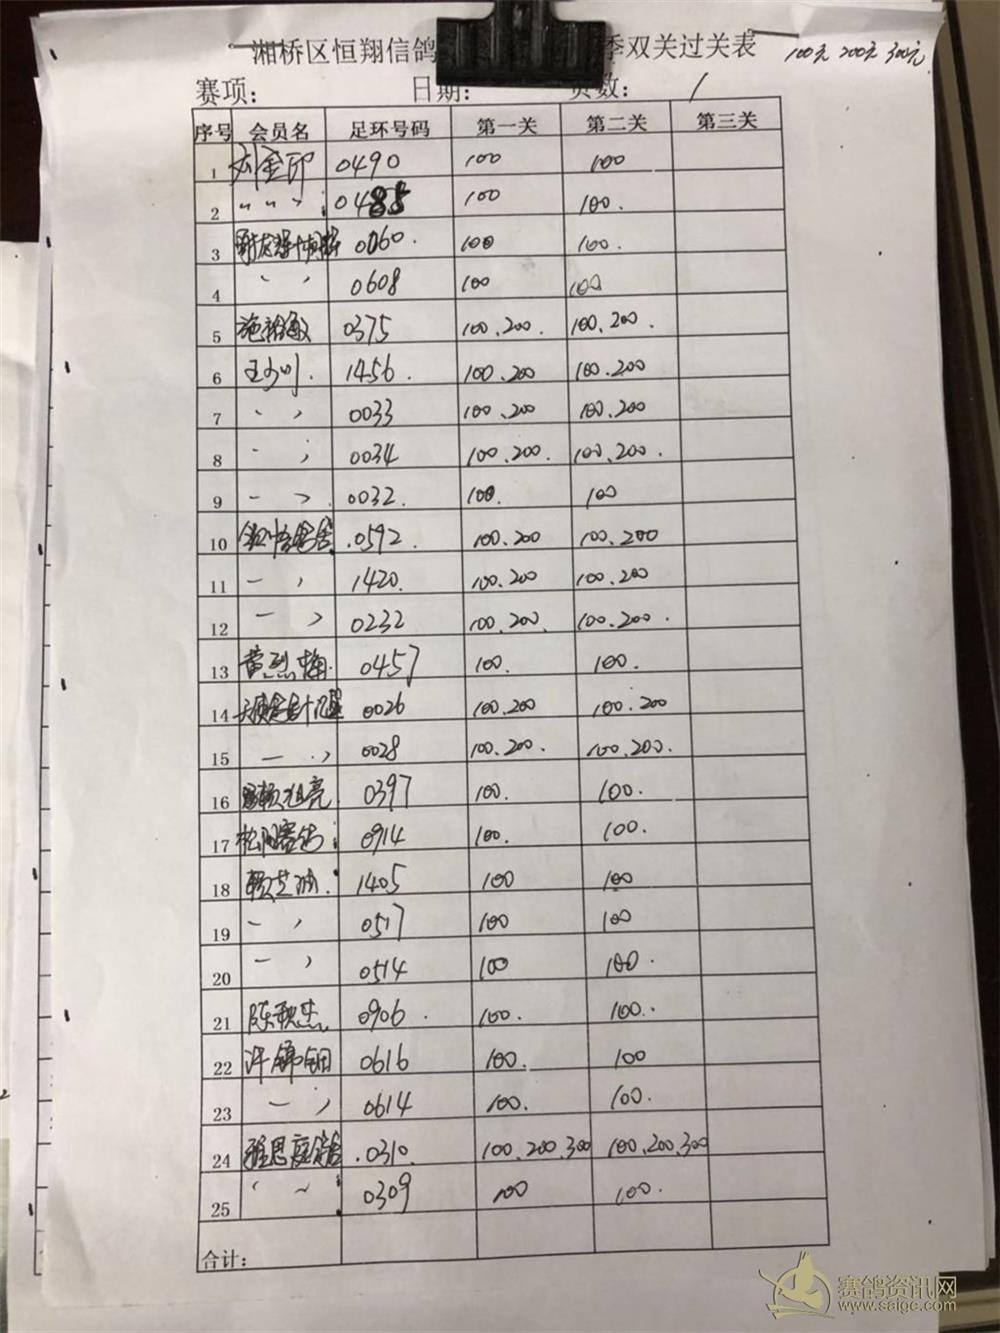 湘桥区恒翔信鸽 季双关过关表 100元 200元 300元.
赛项: 日期: 页数: 1
序号 会员名 足环号码 第一关 第二关 第三关
1 刘金印 0490 100 100
2 〃 〃 0485 100 100.
3 0060. 100 100.
4 〃 0608 100 100
5 0375 100.200. 100.200.
6 1456. 100.200 100.200
7 〃 0033 100.200 100.200
8 〃 0034 100.200. 100.200.
9 〃 0032. 100. 100
10 .0592. 100.200 100.200
11 〃 1420. 100.200 100.200
12 〃 0232 100.200. 100.200.
13 黄烈梅. 0457 100. 100.
14 0026 100.200 100.200
15 〃 0028 100.200. 100.200.
16 0397 100. 100.
17 0914 100. 100.
18 1405 100 100
19 〃 0517 100 100
20 〃 0514 100 100.
21 0906. 100. 100.
22 许锦钿 0616 100. 100
23 〃 0614 100. 100.
24 雅思庭鸽舍 .0310. 100.200.300 100.200.300
25 〃 0309 100 100.
合计:
赛鸽资讯网
www.saigc.com